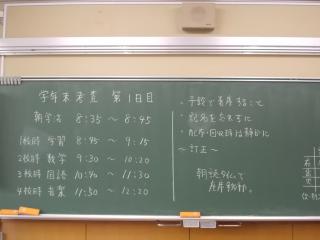 学年末考査 第1日目
朝学活 8:35 ～ 8:45
1校時 学習 8:45 ～ 9:15
2校時 数学 9:30 ～ 10:20
3校時 国語 10:40 ～ 11:30
4校時 音楽 11:50 ～ 12:20
・予鈴で着席すること
・記名を忘れずに
・配布・回収時は静かに
～訂正～
朝読タイムで